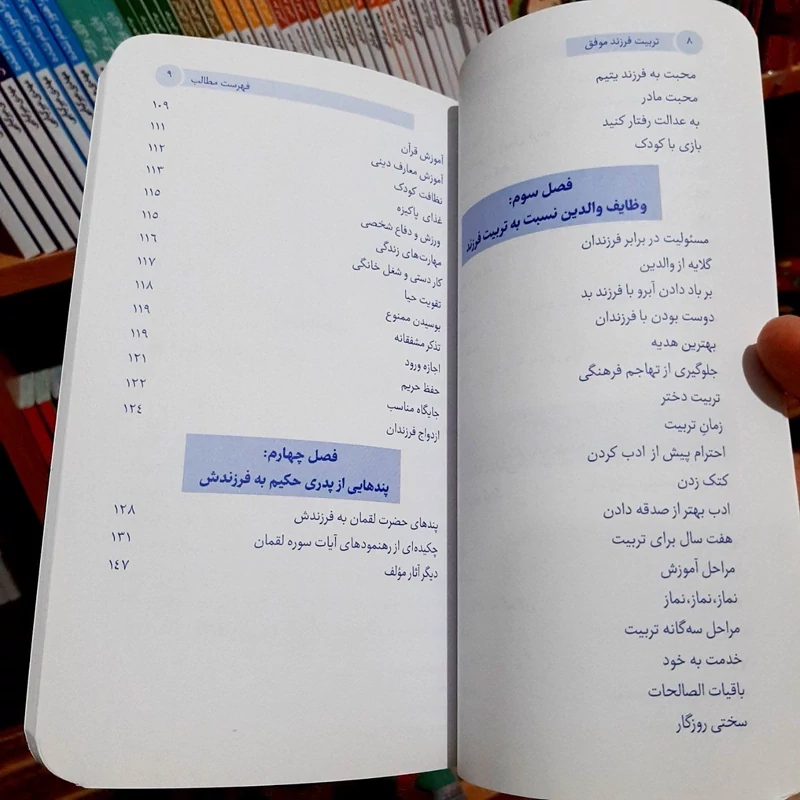 ۸ تربیت فرزند موفق
محبت به فرزند یتیم
محبت مادر
به عدالت رفتار کنید
بازی با کودک
فصل سوم:
وظایف والدین نسبت به تربیت فرزند
مسئولیت در برابر فرزندان
گلایه از والدین
بر باد دادن آبرو با فرزند بد
دوست بودن با فرزندان
بهترین هدیه
جلوگیری از تهاجم فرهنگی
تربیت دختر
زمانِ تربیت
احترام پیش از ادب کردن
کتک زدن
ادب بهتر از صدقه دادن
هفت سال برای تربیت
مراحل آموزش
نماز،نماز،نماز
مراحل سه‌گانه تربیت
خدمت به خود
باقیات الصالحات
سختی روزگار
فهرست مطالب ۹
آموزش قرآن ۱۰۹
آموزش معارف دینی ۱۱۱
نظافت کودک ۱۱۲
غذای پاکیزه ۱۱۳
ورزش و دفاع شخصی ۱۱۵
مهارت‌های زندگی ۱۱۵
کار دستی و شغل خانگی ۱۱۶
تقویت حیا ۱۱۷
بوسیدن ممنوع ۱۱۸
تذکر مشفقانه ۱۱۹
اجازه ورود ۱۱۹
حفظ حریم ۱۲۱
جایگاه مناسب ۱۲۲
ازدواج فرزندان ۱۲۴
فصل چهارم:
پندهایی از پدری حکیم به فرزندش
پندهای حضرت لقمان به فرزندش ۱۲۸
چکیده‌ای از رهنمودهای آیات سوره لقمان ۱۳۱
دیگر آثار مؤلف ۱۴۷